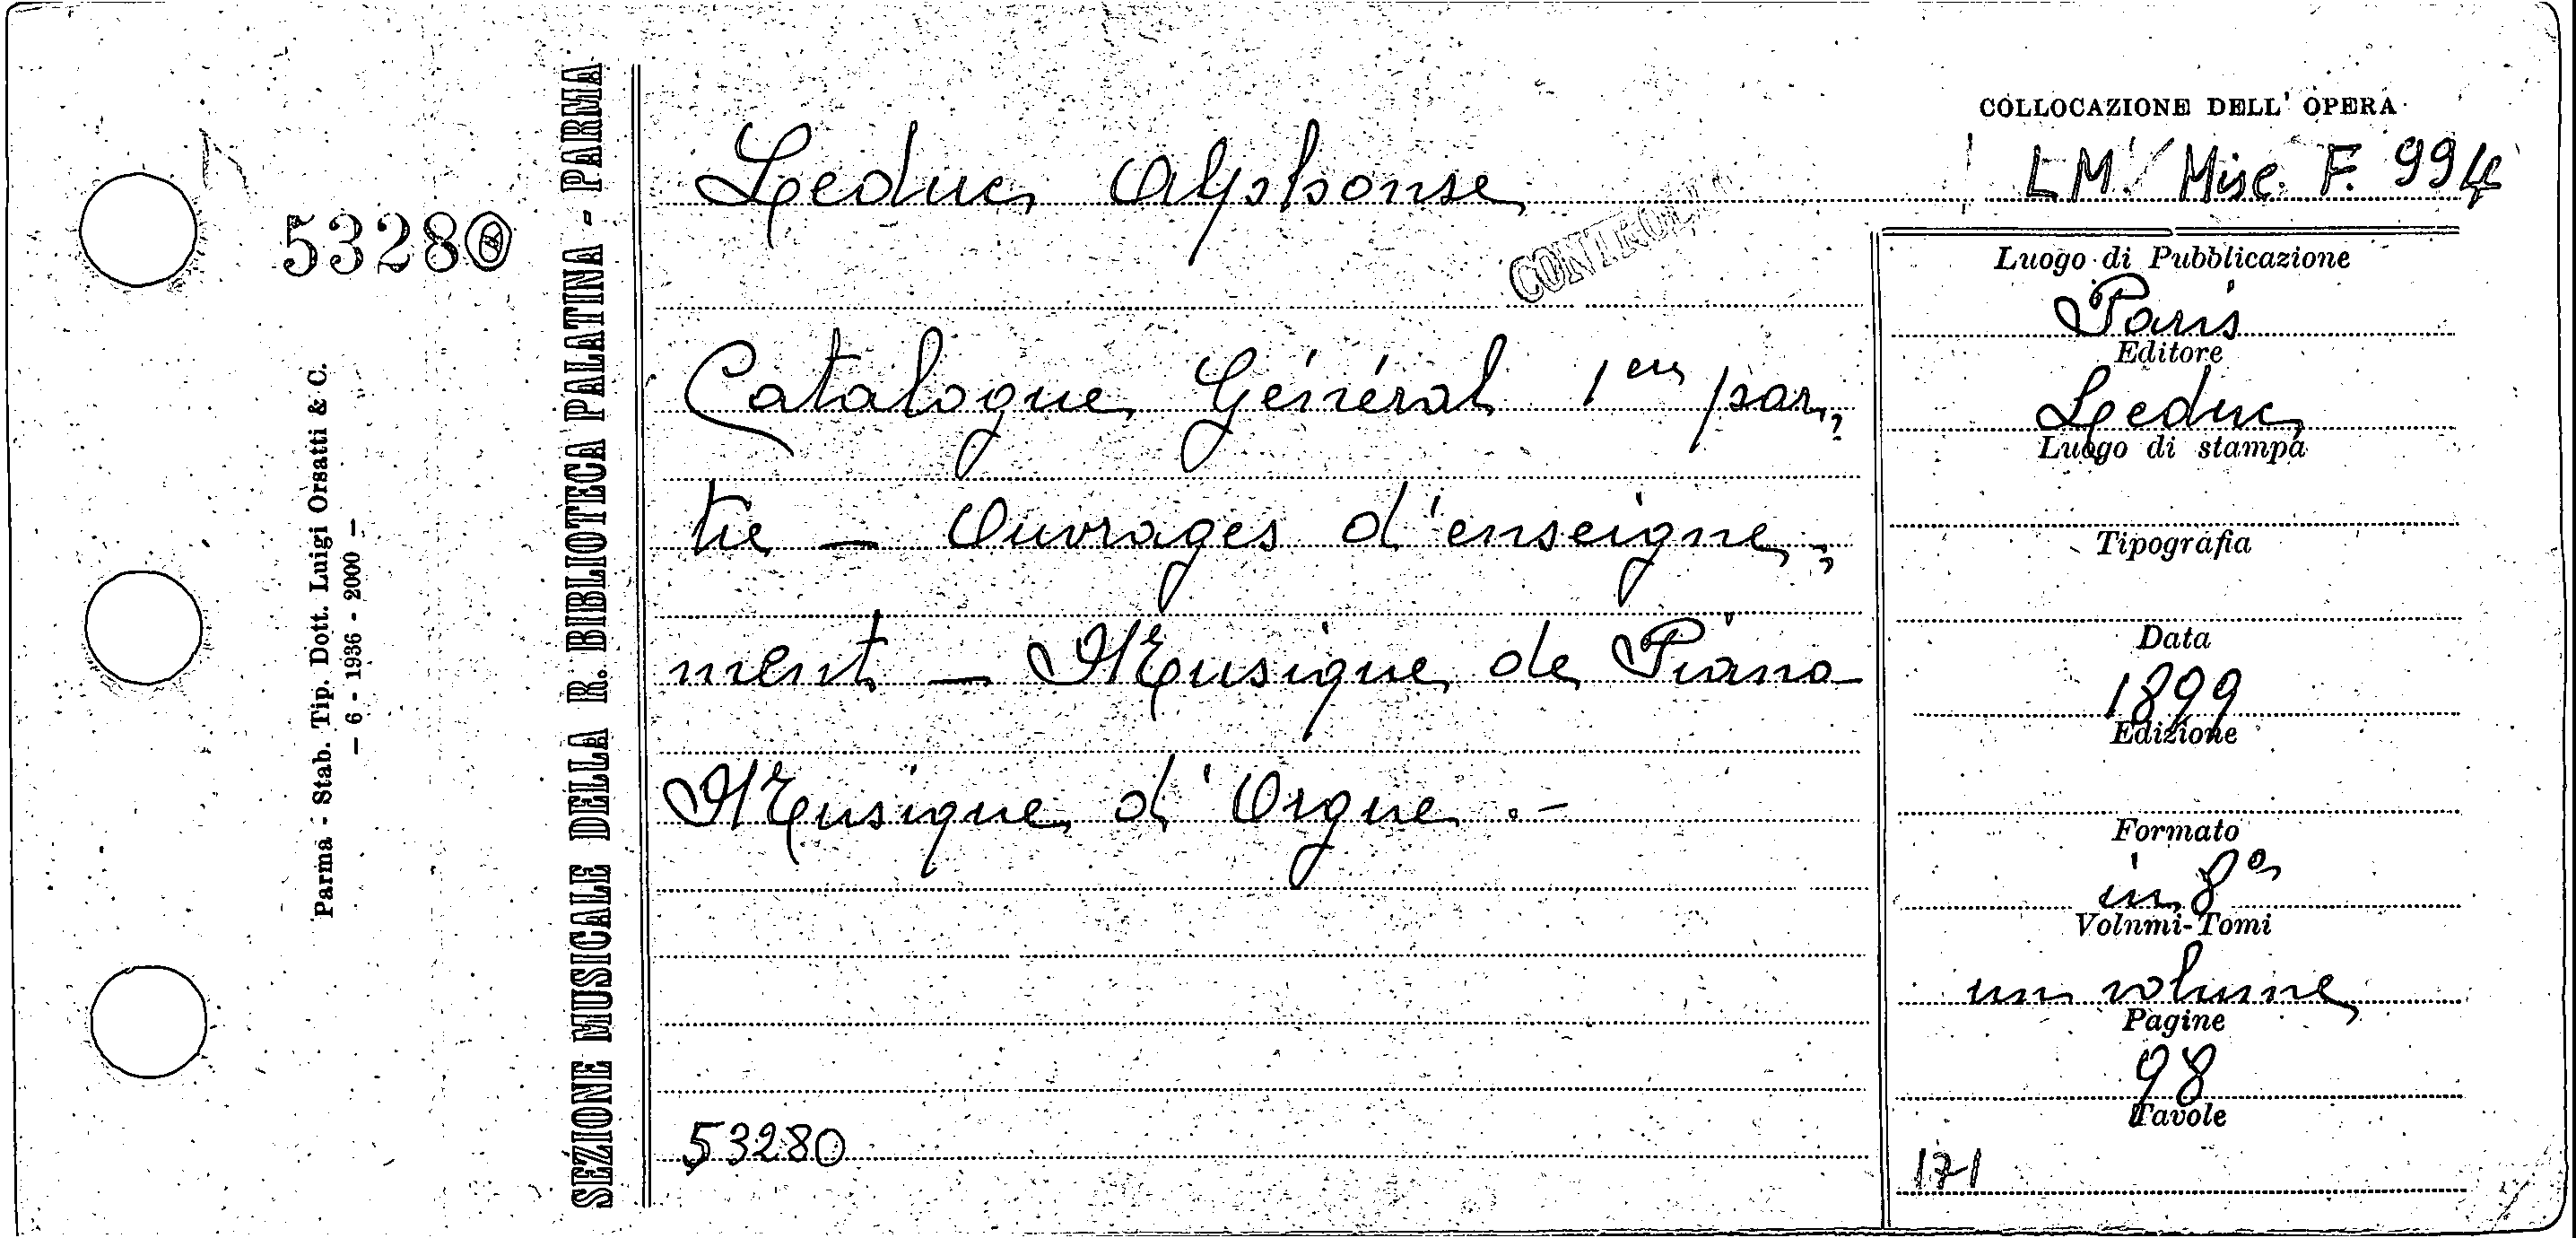 COLLOCAZIONE DELL' OPERA
LM. Misc. F. 994
Leduc Alphonse
53280
Luogo di Pubblicazione
Paris
Editore
Leduc
Luogo di stampa
Tipografia
Data
1899
Edizione
Formato
in 8°
Volnmi-Tomi
un volume
Pagine
98
Tavole
171
Catalogue Général 1er par-
tie - Ouvrages d'enseigne-
ment - Musique de Piano
Musique d'Orgue .-
53280
SEZIONE MUSICALE DELLA R. BIBLIOTECA PALATINA - PARMA
Parma - Stab. Tip. Dott. Luigi Orsatti & C.
- 6 - 1936 - 2000 -